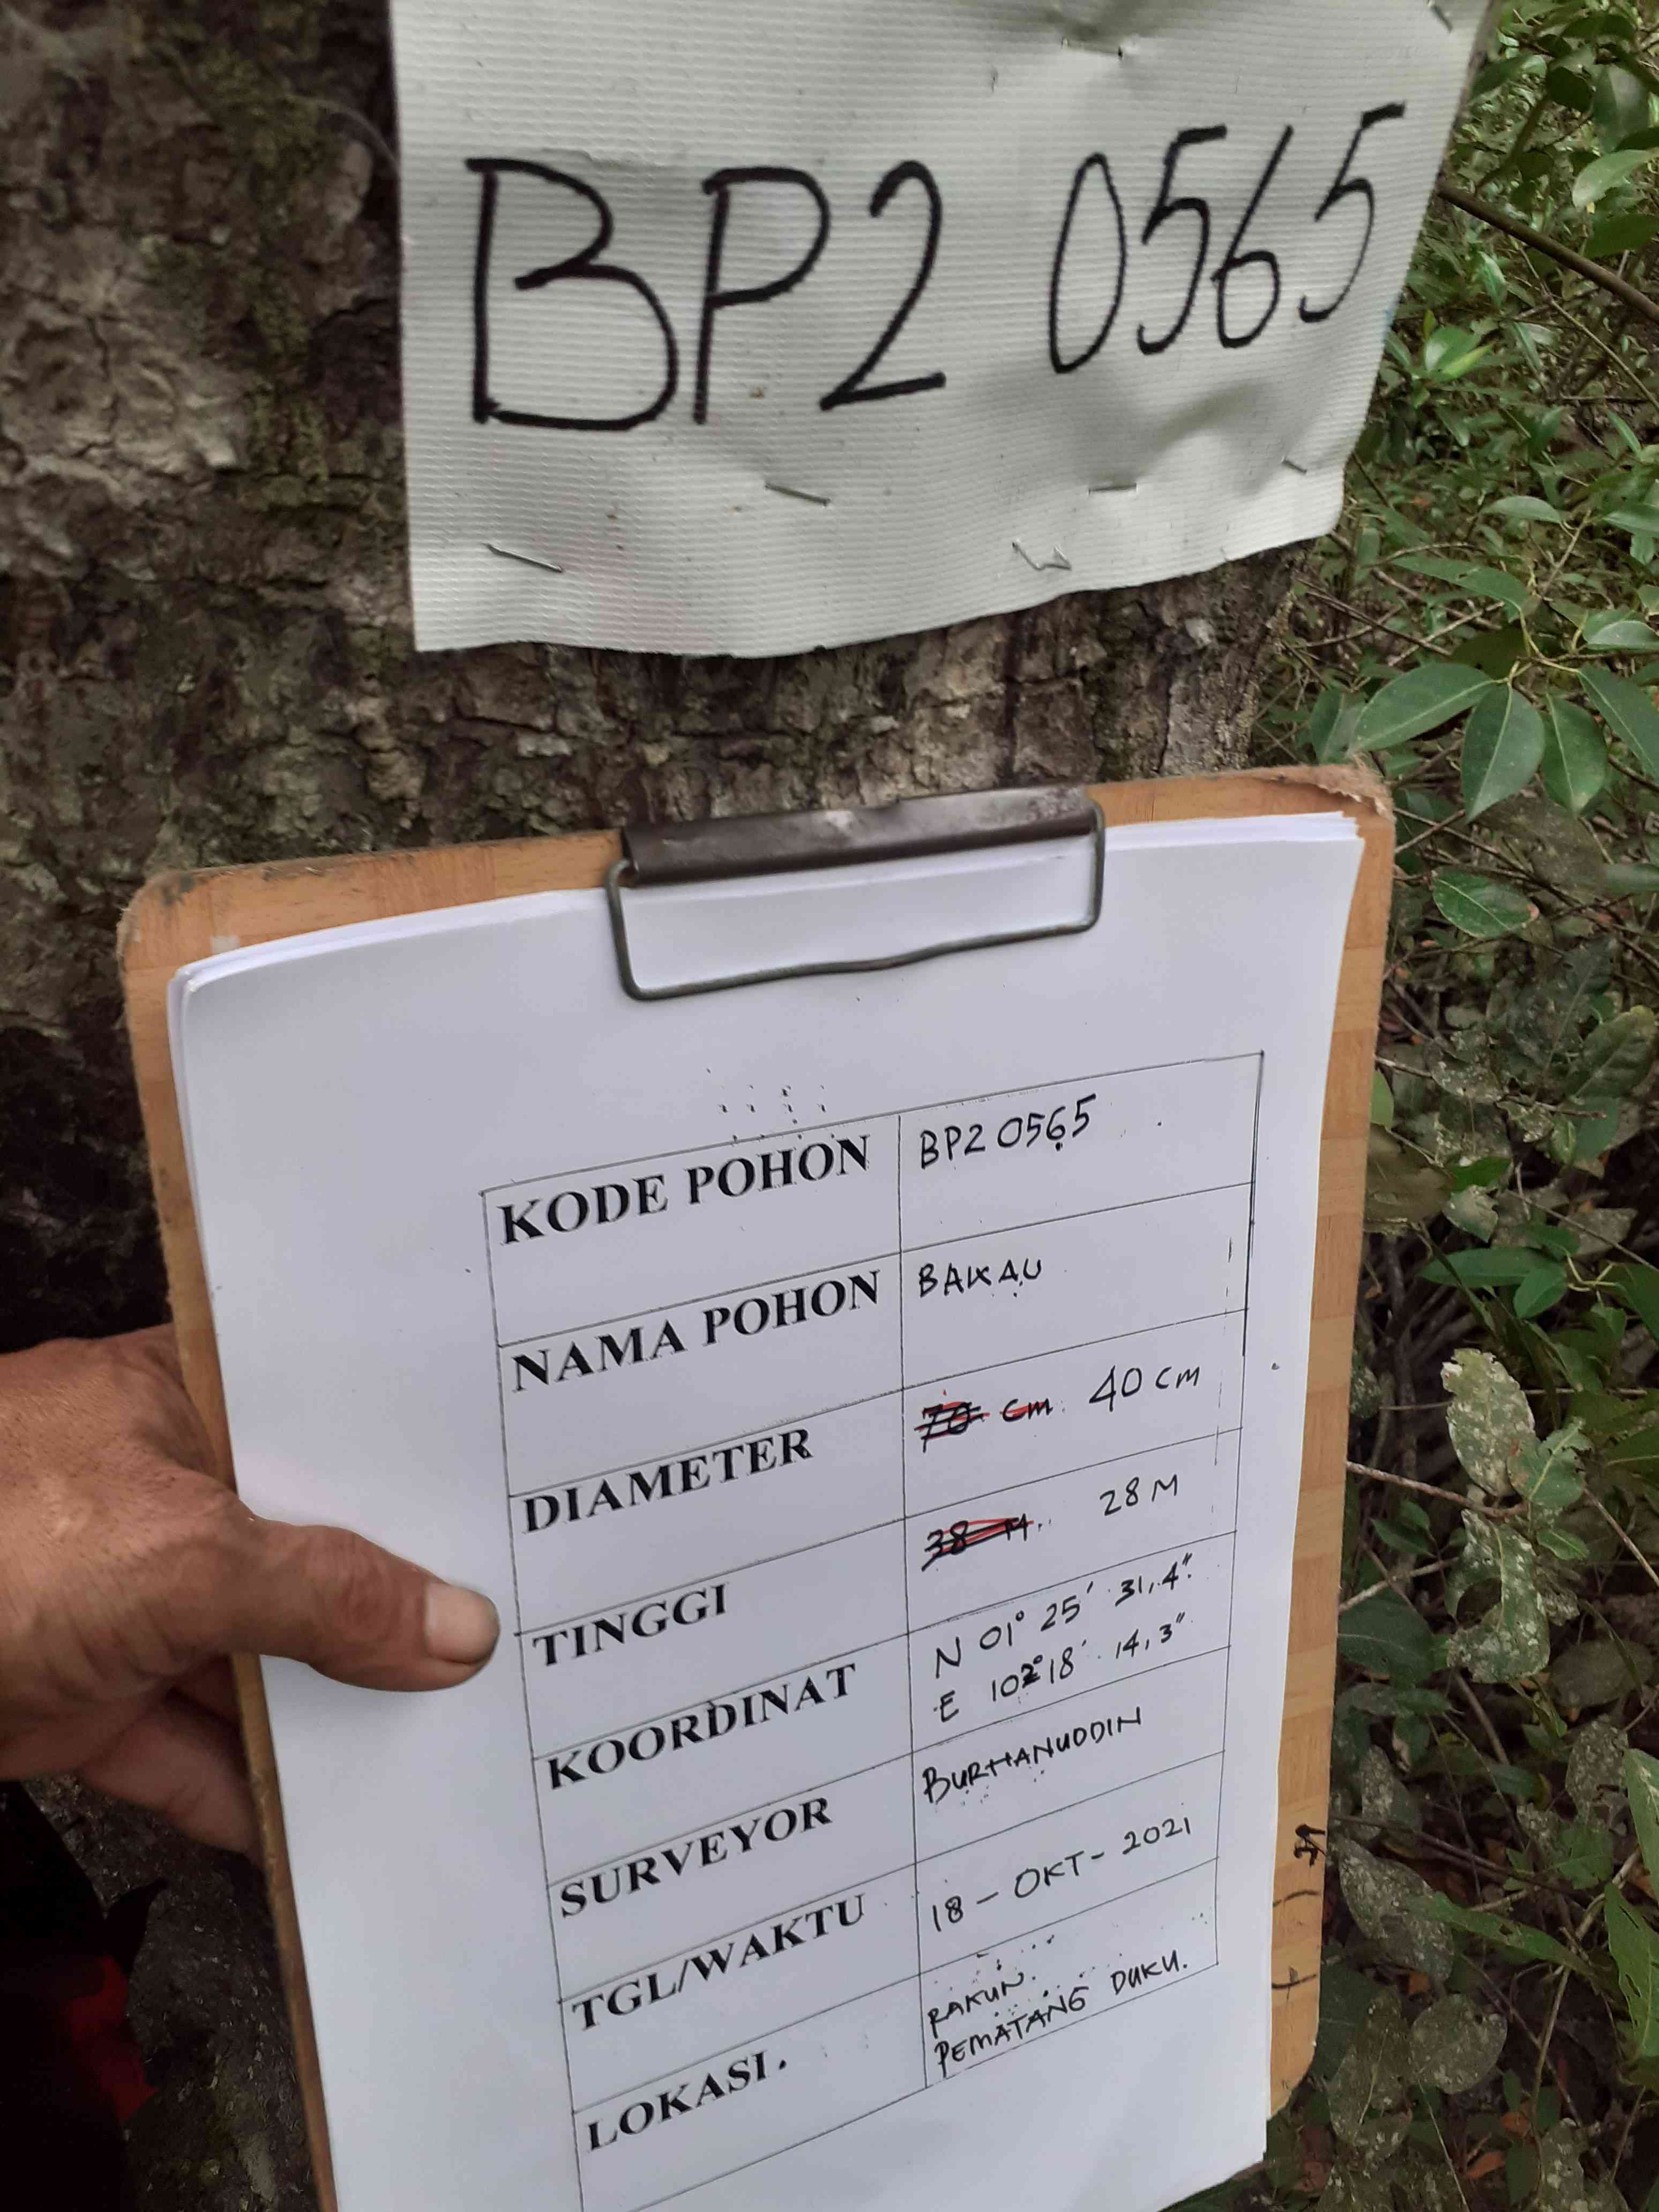 BP2 0565
KODE POHON BP2 0565
NAMA POHON BAKAU
DIAMETER 70 cm 40 cm
TINGGI 38 M 28 M
KOORDINAT N 01° 25' 31,4"
E 102° 18' 14,3"
SURVEYOR BURHANUDDIN
TGL/WAKTU 18 - OKT - 2021
LOKASI. RAKUN.
PEMATANG DUKU.